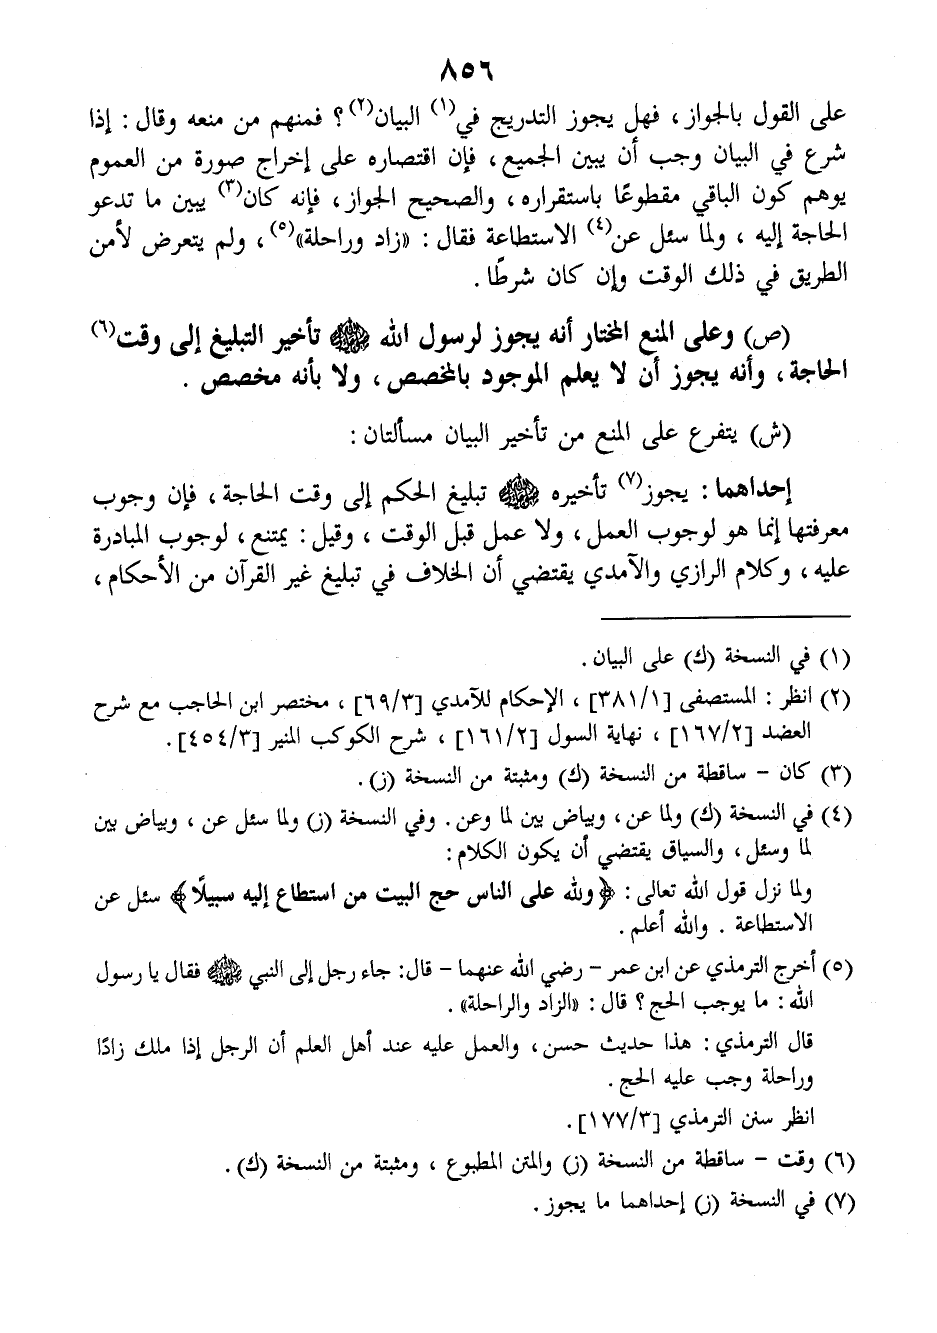 ٨٥٦
على القول بالجواز، فهل يجوز التدريج في(١) البيان(٢)؟ فمنهم من منعه وقال: إذا
شرع في البيان وجب أن يبين الجميع، فإن اقتصاره على إخراج صورة من العموم
يوهم كون الباقي مقطوعًا باستقراره، والصحيح الجواز، فإنه كان(٣) يبين ما تدعو
الحاجة إليه، ولما سئل عن(٤) الاستطاعة فقال: «زاد وراحلة»(٥)، ولم يتعرض لأمن
الطريق في ذلك الوقت وإن كان شرطًا.
(ص) وعلى المنع المختار أنه يجوز لرسول الله ﷺ تأخير التبليغ إلى وقت(٦)
الحاجة، وأنه يجوز أن لا يعلم الموجود بالمخصص، ولا بأنه مخصص.
(ش) يتفرع على المنع من تأخير البيان مسألتان:
إحداهما: يجوز(٧) تأخيره ﷺ تبليغ الحكم إلى وقت الحاجة، فإن وجوب
معرفتها إنما هو لوجوب العمل، ولا عمل قبل الوقت، وقيل: يمتنع، لوجوب المبادرة
عليه، وكلام الرازي والآمدي يقتضي أن الخلاف في تبليغ غير القرآن من الأحكام،
(١) في النسخة (ك) على البيان.
(٢) انظر: المستصفى [٣٨١/١]، الإحكام للآمدي [٦٩/٣]، مختصر ابن الحاجب مع شرح
العضد [١٦٧/٢]، نهاية السول [١٦١/٢]، شرح الكوكب المنير [٤٥٤/٣].
(٣) كان - ساقطة من النسخة (ك) ومثبتة من النسخة (ز).
(٤) في النسخة (ك) ولما عن، وبياض بين لما وعن. وفي النسخة (ز) ولما سئل عن، وبياض بين
لما وسئل، والسياق يقتضي أن يكون الكلام:
ولما نزل قول الله تعالى: ﴿ولله على الناس حج البيت من استطاع إليه سبيلًا﴾ سئل عن
الاستطاعة. والله أعلم.
(٥) أخرج الترمذي عن ابن عمر - رضي الله عنهما - قال: جاء رجل إلى النبي ﷺ فقال يا رسول
الله: ما يوجب الحج؟ قال: «الزاد والراحلة».
قال الترمذي: هذا حديث حسن، والعمل عليه عند أهل العلم أن الرجل إذا ملك زادًا
وراحلة وجب عليه الحج.
انظر سنن الترمذي [١٧٧/٣].
(٦) وقت - ساقطة من النسخة (ز) والمتن المطبوع، ومثبتة من النسخة (ك).
(٧) في النسخة (ز) إحداهما ما يجوز.